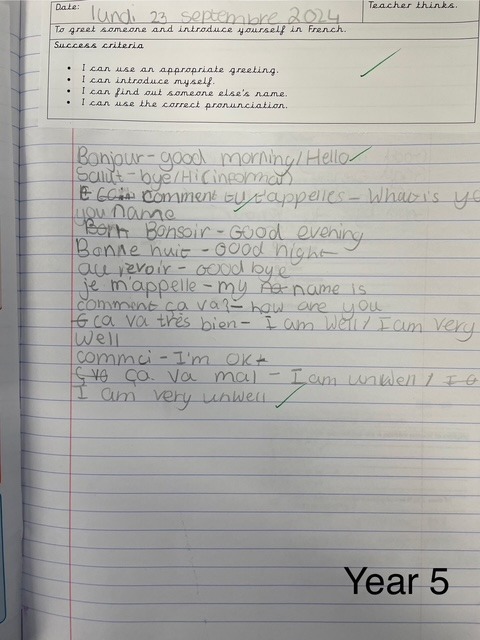 Date: lundi 23 septembre 2024
Teacher thinks.
To greet someone and introduce yourself in French.
Success criteria
• I can use an appropriate greeting.
• I can introduce myself.
• I can find out someone else's name.
• I can use the correct pronunciation.
Bonjour - good morning/Hello
Salut - bye/Hi (informal)
comment tu t'appelles - What is
you name
Bonsoir - Good evening
Bonne huit - Good night
au revoir - Good bye
je m'appelle - my name is
comment ça va? - how are you
ça va très bien - I am well / I am very
well
commci - I'm ok
ça. va mal - I am unwell /
I am very unwell
Year 5